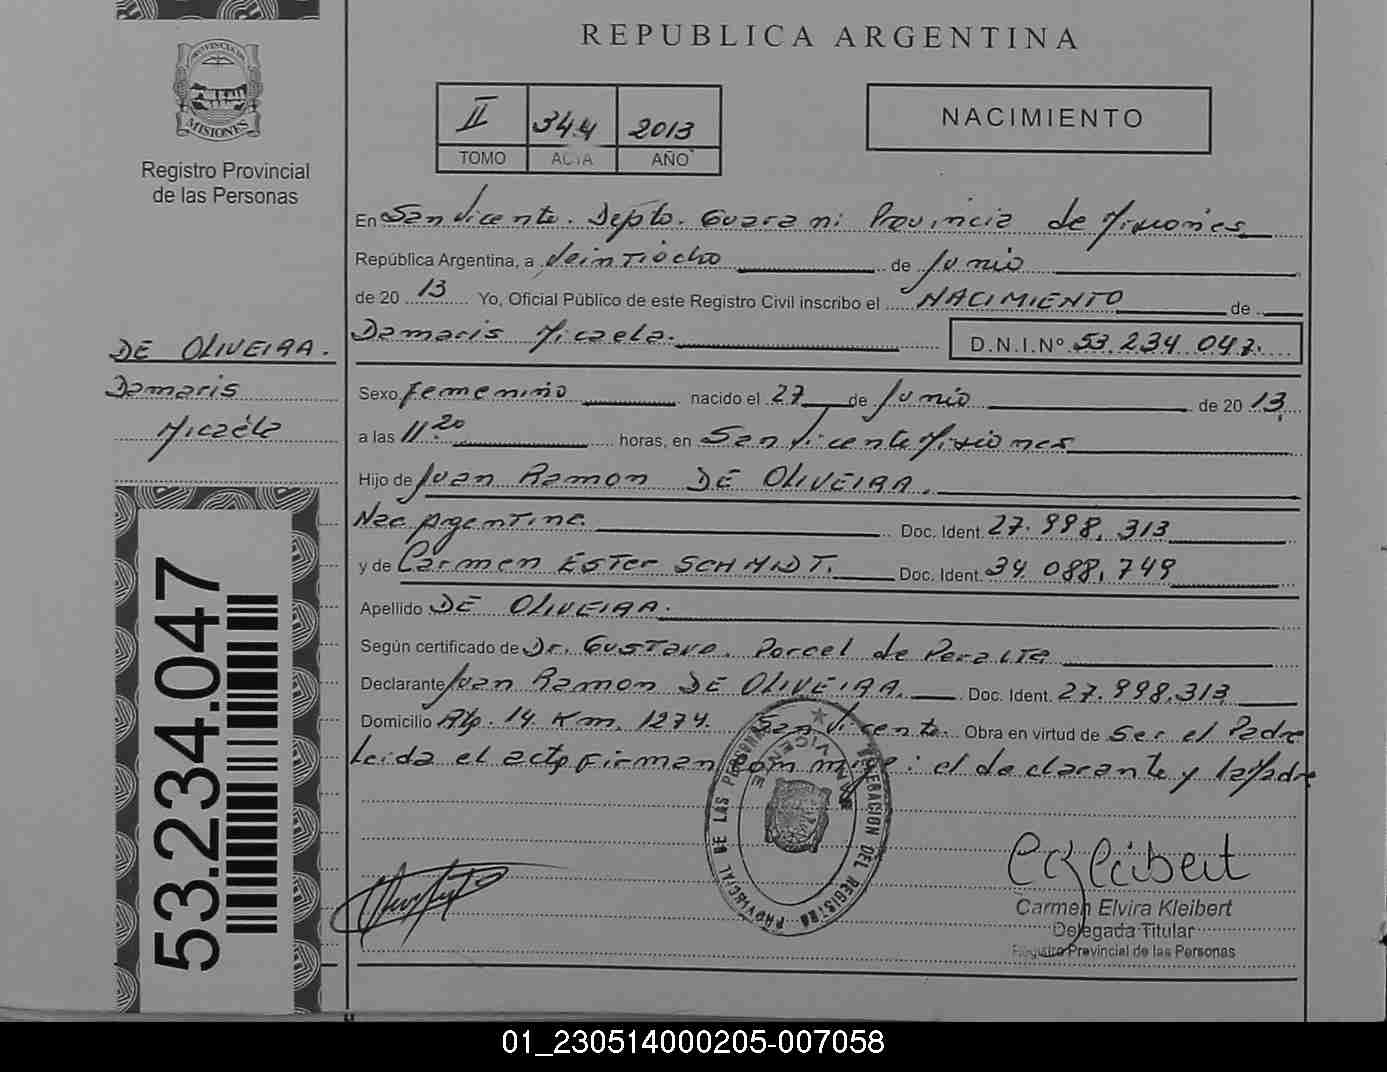 REPUBLICA ARGENTINA
PROVINCIA DE
MISIONES
Registro Provincial
de las Personas
II 344 2013
TOMO ACTA AÑO
NACIMIENTO
En San Vicente. Depto. Guarani Provincia de Misiones
República Argentina, a Veintiocho de Junio
de 2013 Yo, Oficial Público de este Registro Civil inscribo el NACIMIENTO de
Damaris Micaela. D.N.I.Nº 53.234.047.
DE OLIVEIRA.
Damaris
Micaela
Sexo femenino nacido el 27 de Junio de 2013,
a las 11.20 horas, en San Vicente Misiones
Hijo de Juan Ramon DE OLIVEIRA.
Nac Argentina. Doc. Ident. 27.998.313
y de Carmen ESTer SCHMIDT. Doc. Ident. 34.088.749
Apellido DE OLIVEIRA.
Según certificado de Dr. Gustavo. Porcel de Peralta
Declarante Juan Ramon DE OLIVEIRA. Doc. Ident. 27.998.313
Domicilio Alp. 14 Km. 1274. San Vicente. Obra en virtud de Ser el Padre
Leida el acta firman com migo: el declarante y la Madre
53.234.047
DELEGACION DEL REGISTRO PROVINCIAL DE LAS PERSONAS
SAN VICENTE
Carmen Elvira Kleibert
Delegada Titular
Registro Provincial de las Personas
01_230514000205-007058